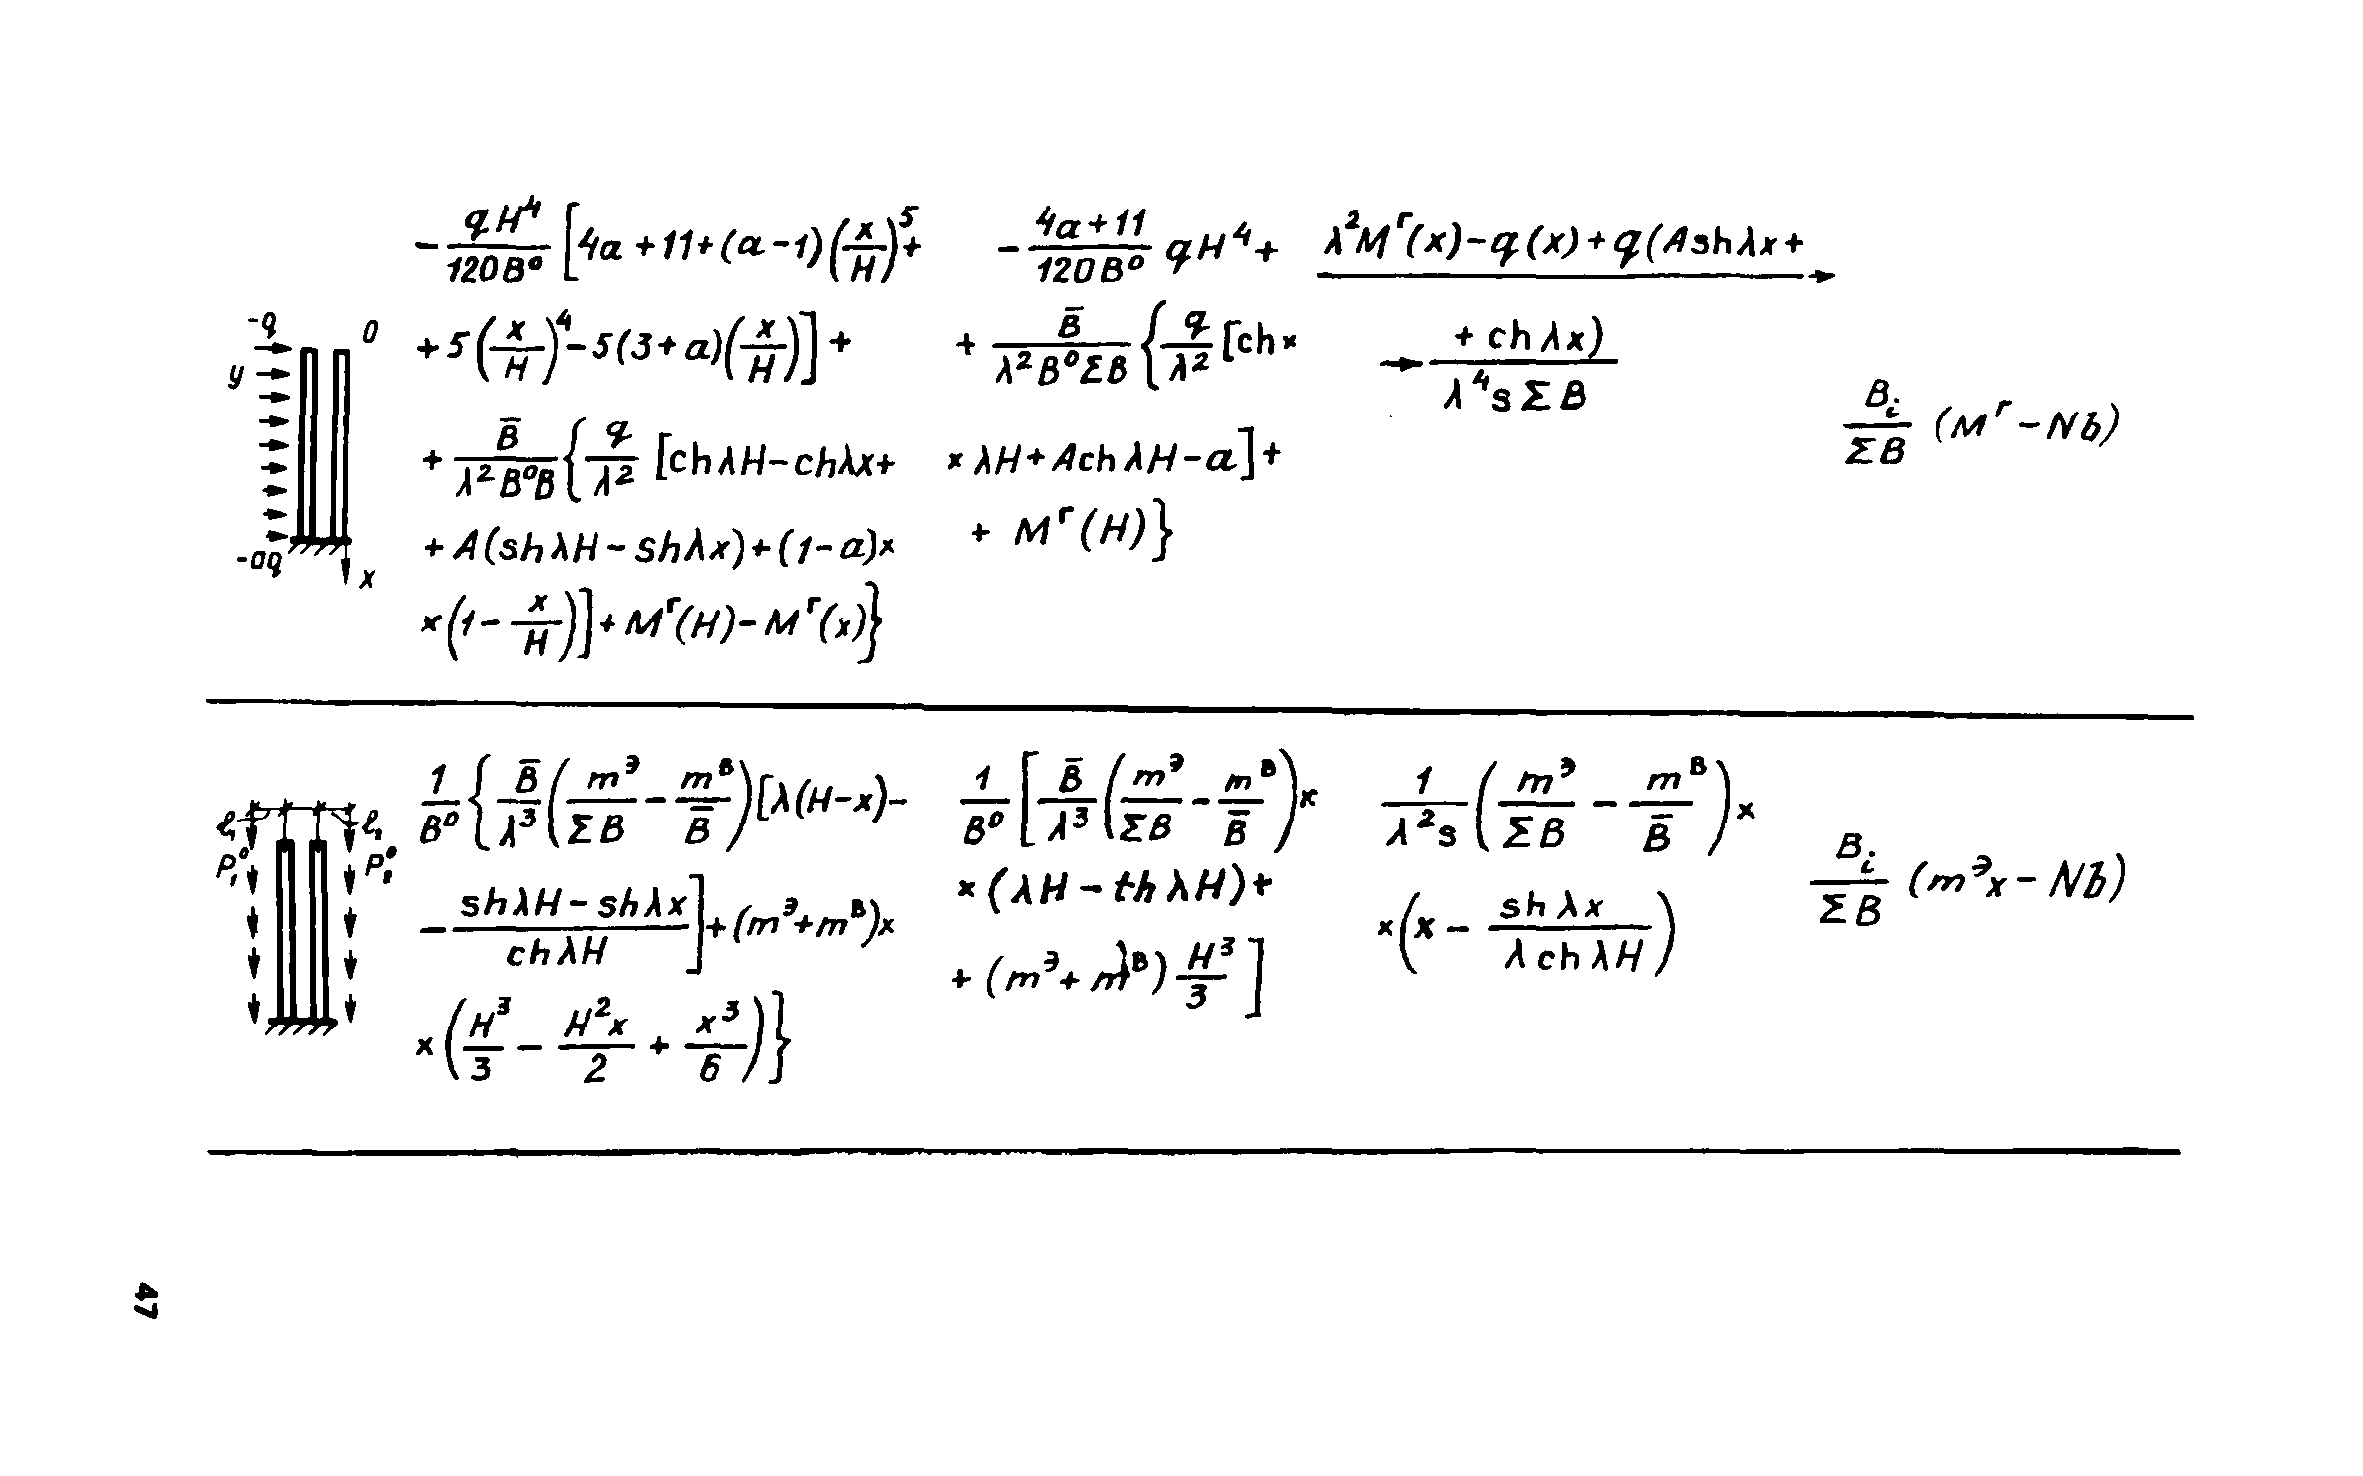 -q
0
y
-aq
x
$-\frac{qH^4}{120B^0}\left[4a+11+(a-1)\left(\frac{x}{H}\right)^5+\right.$
$+5\left(\frac{x}{H}\right)^4-5(3+a)\left(\frac{x}{H}\right)\Big]+$
$+\frac{\bar{B}}{\lambda^2B^0B}\Big\{\frac{q}{\lambda^2}[ch\lambda H-ch\lambda x+$
$+A(sh\lambda H-sh\lambda x)+(1-a)\times$
$\times\left(1-\frac{x}{H}\right)\Big]+M^г(H)-M^г(x)\Big\}$
$-\frac{4a+11}{120B^0}qH^4+$
$+\frac{\bar{B}}{\lambda^2B^0\Sigma B}\Big\{\frac{q}{\lambda^2}[ch\times$
$\times\lambda H+Ach\lambda H-a]+$
$+M^г(H)\Big\}$
$\underline{\lambda^2M^г(x)-q(x)+q(Ash\lambda x+}\rightarrow$
$\rightarrow\frac{+ch\lambda x)}{\lambda^4s\Sigma B}$
$\frac{B_i}{\Sigma B}(M^г-Nb)$
$\ell_1$ $\ell_2$
$P_1^0$ $P_2^0$
$\frac{1}{B^0}\Big\{\frac{\bar{B}}{\lambda^3}\left(\frac{m^э}{\Sigma B}-\frac{m^в}{\bar{B}}\right)[\lambda(H-x)-$
$-\frac{sh\lambda H-sh\lambda x}{ch\lambda H}\Big]+(m^э+m^в)\times$
$\times\left(\frac{H^3}{3}-\frac{H^2x}{2}+\frac{x^3}{6}\right)\Big\}$
$\frac{1}{B^0}\Big[\frac{\bar{B}}{\lambda^3}\left(\frac{m^э}{\Sigma B}-\frac{m^в}{\bar{B}}\right)\times$
$\times(\lambda H-th\lambda H)+$
$+(m^э+m^в)\frac{H^3}{3}\Big]$
$\frac{1}{\lambda^2s}\left(\frac{m^э}{\Sigma B}-\frac{m^в}{\bar{B}}\right)\times$
$\times\left(x-\frac{sh\lambda x}{\lambda ch\lambda H}\right)$
$\frac{B_i}{\Sigma B}(m^эx-Nb)$
47